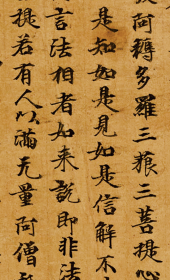 阿耨多羅三藐三菩提心
是知如是見如是信解不
言法相者如来說即非法
提若有人以滿无量阿僧